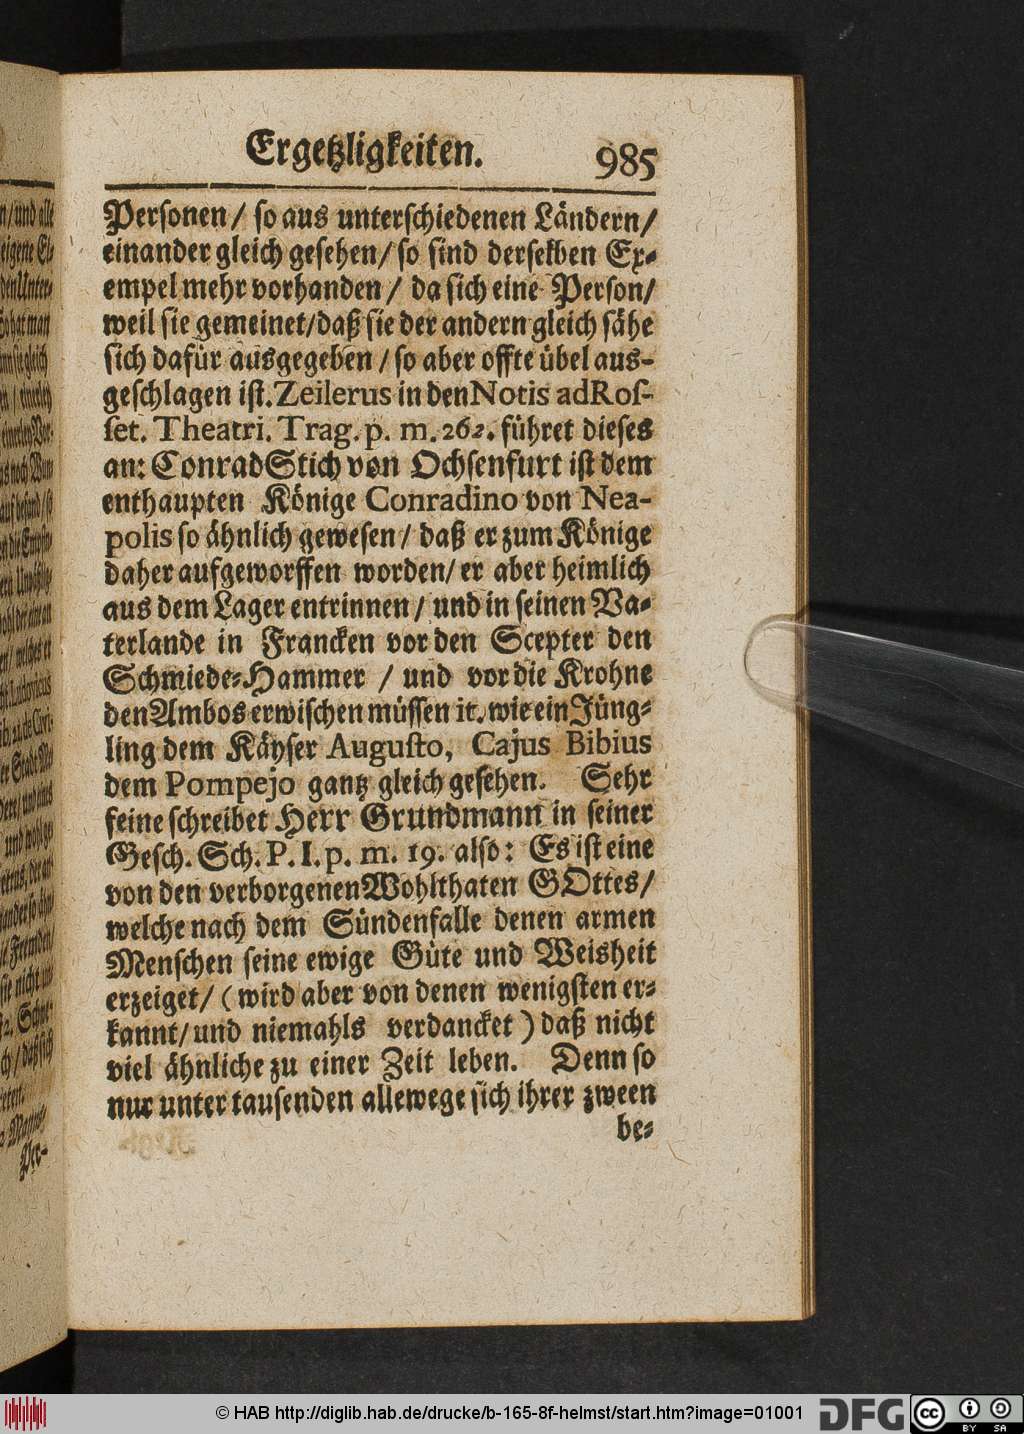 Ergetzligkeiten. 985
Personen/ so aus unterschiedenen Ländern/
einander gleich gesehen/ so sind derselben Ex-
empel mehr vorhanden/ da sich eine Person/
weil sie gemeinet/ daß sie der andern gleich sähe
sich dafür ausgegeben/ so aber offte übel aus-
geschlagen ist. Zeilerus in den Notis ad Ros-
set. Theatri. Trag. p. m. 262. führet dieses
an: Conrad Stich von Ochsenfurt ist dem
enthaupten Könige Conradino von Nea-
polis so ähnlich gewesen/ daß er zum Könige
daher aufgeworffen worden/ er aber heimlich
aus dem Lager entrinnen/ und in seinen Va-
terlande in Francken vor den Scepter den
Schmiede-Hammer / und vor die Krohne
den Ambos erwischen müssen it. wie ein Jüng-
ling dem Käyser Augusto, Cajus Bibius
dem Pompejo gantz gleich gesehen. Sehr
feine schreibet Herr Grundmann in seiner
Gesch. Sch. P. I. p. m. 19. also: Es ist eine
von den verborgenen Wohlthaten GOttes/
welche nach dem Sündenfalle denen armen
Menschen seine ewige Güte und Weisheit
erzeiget/ (wird aber von denen wenigsten er-
kannt/ und niemahls verdancket) daß nicht
viel ähnliche zu einer Zeit leben. Denn so
nur unter tausenden allewege sich ihrer zween
be-
© HAB http://diglib.hab.de/drucke/b-165-8f-helmst/start.htm?image=01001
DFG
cc BY SA